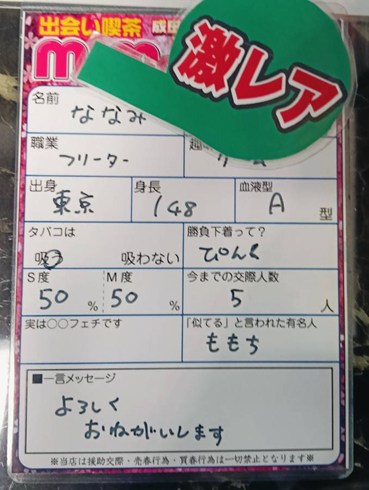 出会い喫茶
激レア
名前
ななみ
職業
フリーター
出身
東京
身長
148
血液型
A 型
タバコは
吸う 吸わない
勝負下着って?
ぴんく
S度
50 %
M度
50 %
今までの交際人数
5 人
実は○○フェチです
「似てる」と言われた有名人
ももち
■一言メッセージ
よろしく
おねがいします
※当店は援助交際・売春行為・買春行為は一切禁止となります※